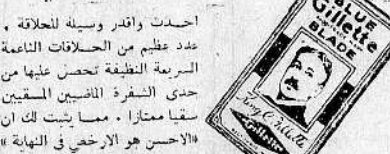 احدث واقدر وسيلة للحلاقة .
عدد عظيم من الحلاقات الناعمة
السريعة النظيفة تحصن عليها من
حدى الشفرة الماضيين المسقيين
سقيا ممتازا . مما يثبت لك ان
«الاحسن هو الارخص في النهاية»
BLUE
Gillette
BLADE
King C. Gillette
Gillette